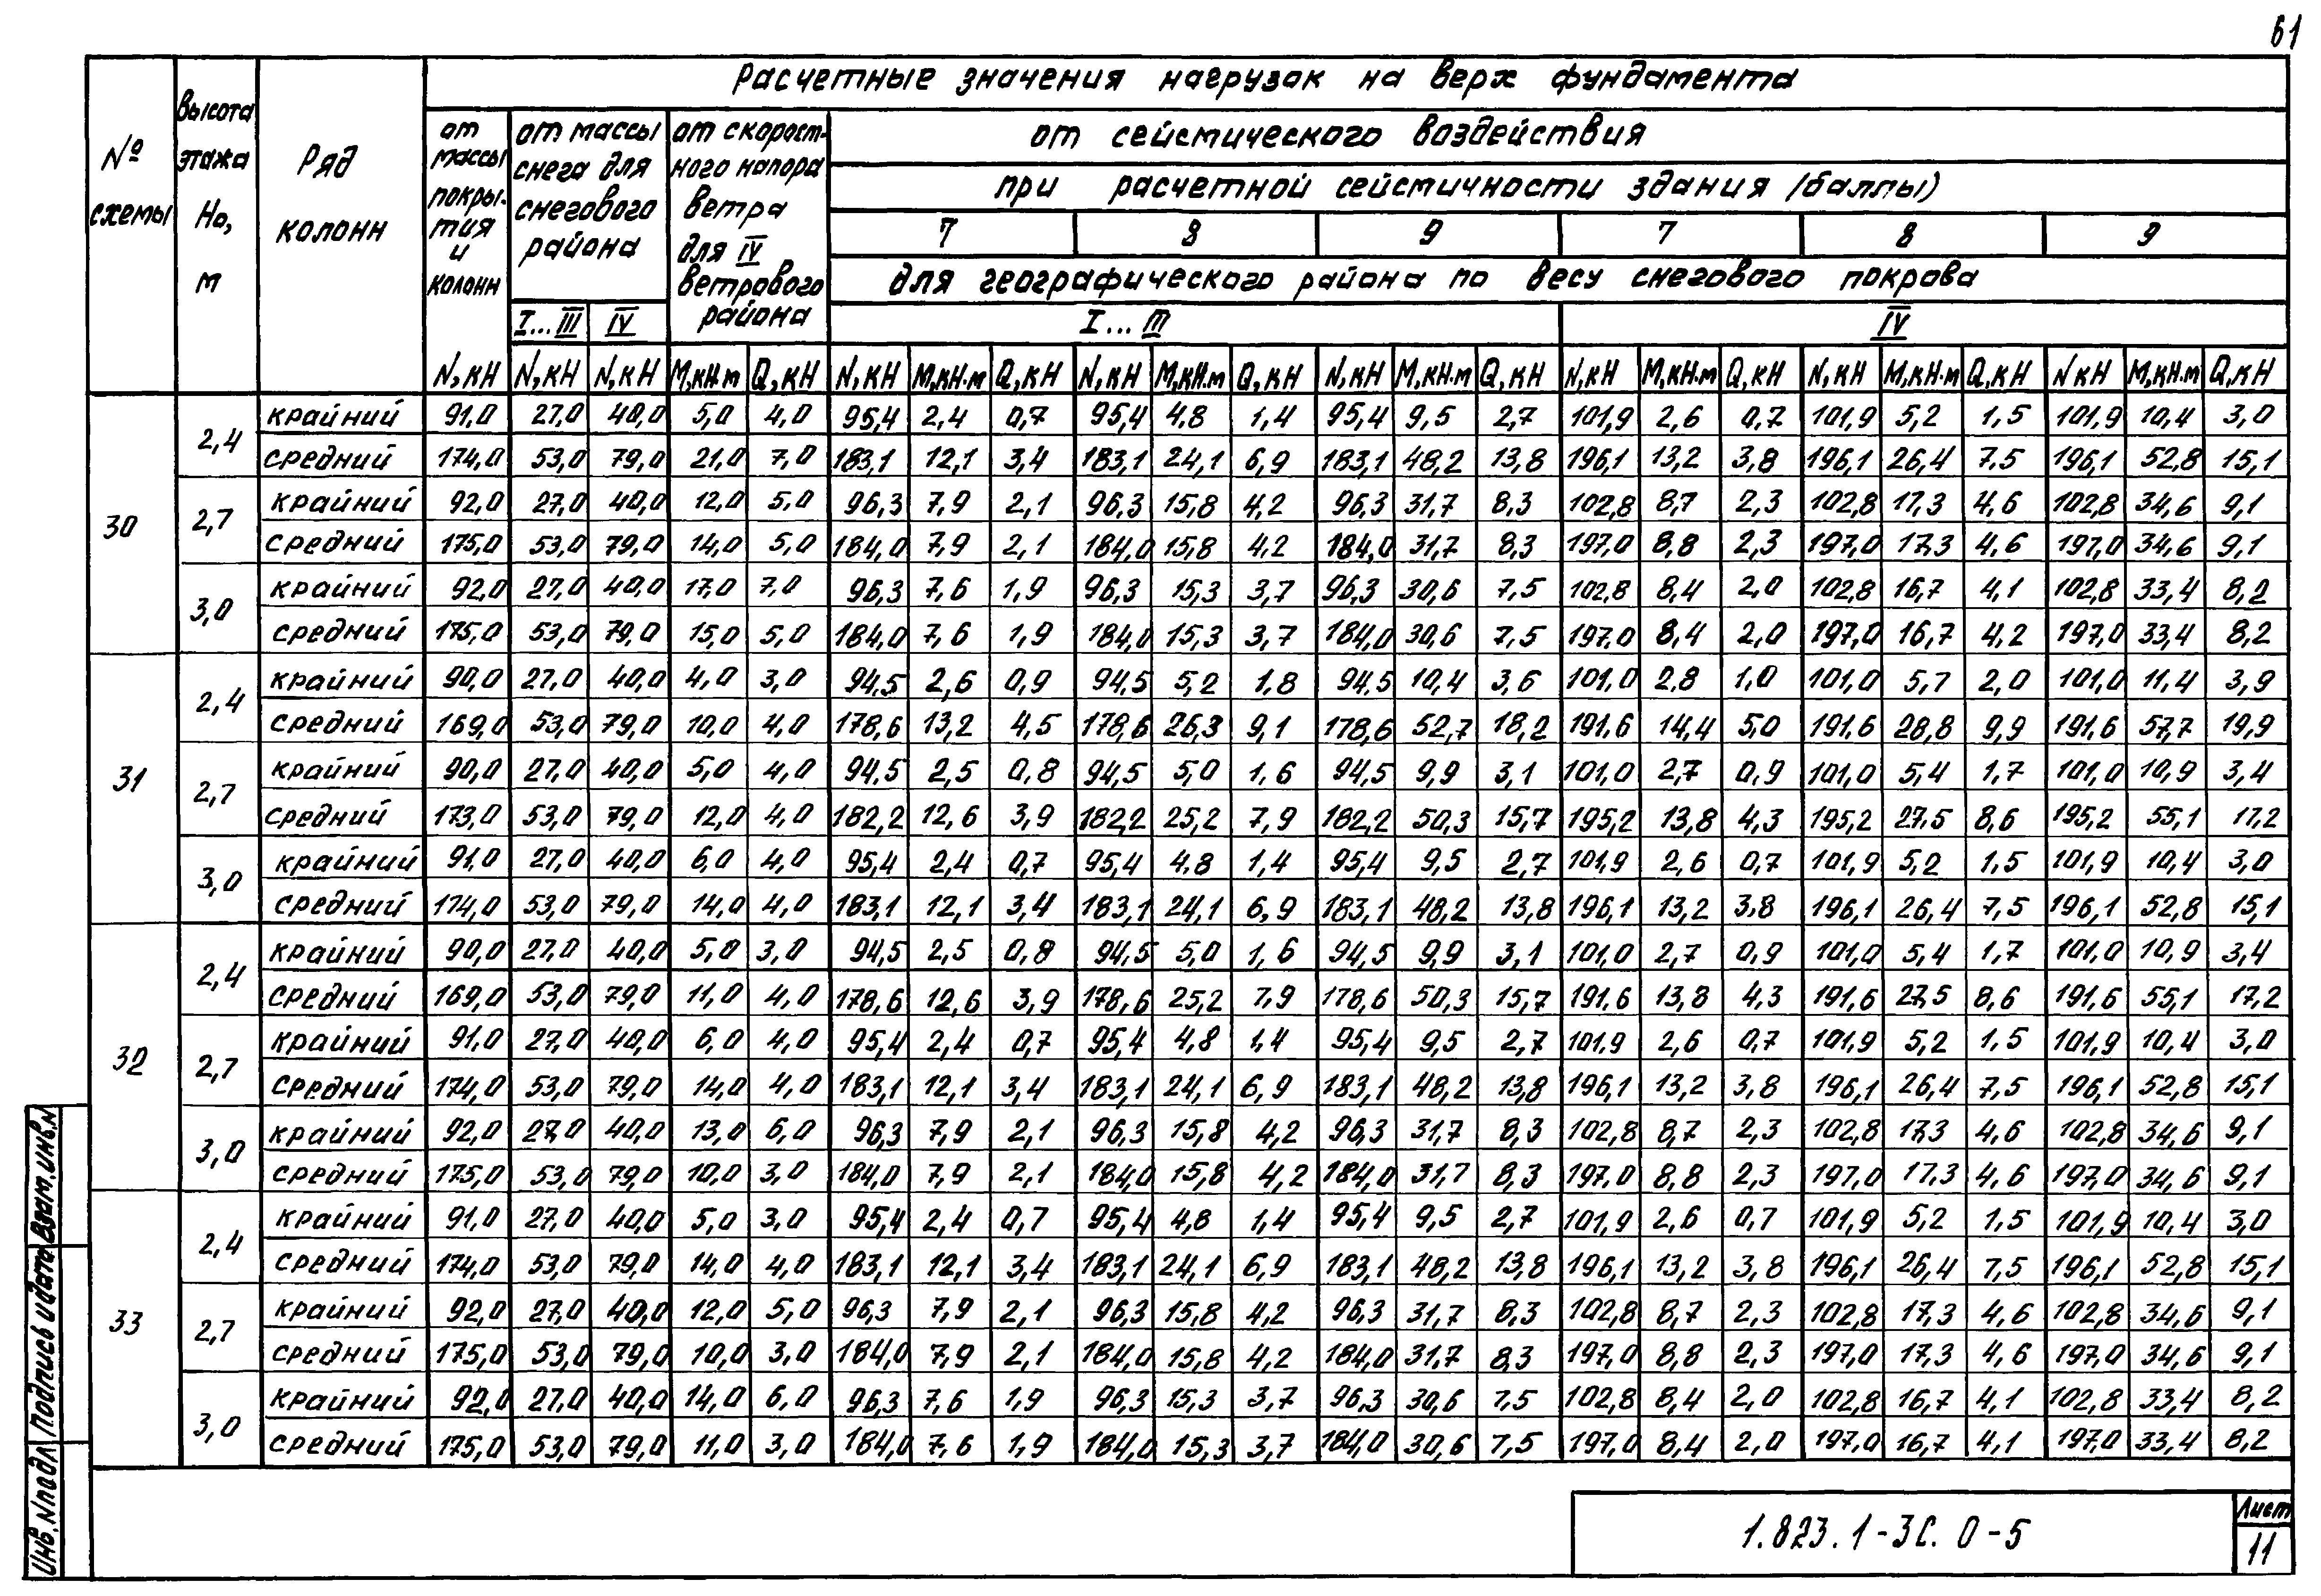 61
Расчетные значения нагрузок на верх фундамента
№ схемы
Высота этажа Но, м
Ряд колонн
от массы покры-тия и колонн
от массы снега для снегового района
от скорост-ного напора ветра для IV ветрового района
от сейсмического воздействия
при расчетной сейсмичности здания (баллы)
7 8 9 7 8 9
для географического района по весу снегового покрова
I...III IV I...III IV
N,кН N,кН N,кН М,кН.м Q,кН N,кН М,кН.м Q,кН N,кН М,кН.м Q,кН N,кН М,кН.м Q,кН N,кН М,кН.м Q,кН N,кН М,кН.м Q,кН N кН М,кН.м Q,кН
30 2,4 крайний 91,0 27,0 40,0 5,0 4,0 95,4 2,4 0,7 95,4 4,8 1,4 95,4 9,5 2,7 101,9 2,6 0,7 101,9 5,2 1,5 101,9 10,4 3,0
средний 174,0 53,0 79,0 21,0 7,0 183,1 12,1 3,4 183,1 24,1 6,9 183,1 48,2 13,8 196,1 13,2 3,8 196,1 26,4 7,5 196,1 52,8 15,1
2,7 крайний 92,0 27,0 40,0 12,0 5,0 96,3 7,9 2,1 96,3 15,8 4,2 96,3 31,7 8,3 102,8 8,7 2,3 102,8 17,3 4,6 102,8 34,6 9,1
средний 175,0 53,0 79,0 14,0 5,0 184,0 7,9 2,1 184,0 15,8 4,2 184,0 31,7 8,3 197,0 8,8 2,3 197,0 17,3 4,6 197,0 34,6 9,1
3,0 крайний 92,0 27,0 40,0 17,0 7,0 96,3 7,6 1,9 96,3 15,3 3,7 96,3 30,6 7,5 102,8 8,4 2,0 102,8 16,7 4,1 102,8 33,4 8,2
средний 175,0 53,0 79,0 15,0 5,0 184,0 7,6 1,9 184,0 15,3 3,7 184,0 30,6 7,5 197,0 8,4 2,0 197,0 16,7 4,2 197,0 33,4 8,2
31 2,4 крайний 90,0 27,0 40,0 4,0 3,0 94,5 2,6 0,9 94,5 5,2 1,8 94,5 10,4 3,6 101,0 2,8 1,0 101,0 5,7 2,0 101,0 11,4 3,9
средний 169,0 53,0 79,0 10,0 4,0 178,6 13,2 4,5 178,6 26,3 9,1 178,6 52,7 18,2 191,6 14,4 5,0 191,6 28,8 9,9 191,6 57,7 19,9
2,7 крайний 90,0 27,0 40,0 5,0 4,0 94,5 2,5 0,8 94,5 5,0 1,6 94,5 9,9 3,1 101,0 2,7 0,9 101,0 5,4 1,7 101,0 10,9 3,4
средний 173,0 53,0 79,0 12,0 4,0 182,2 12,6 3,9 182,2 25,2 7,9 182,2 50,3 15,7 195,2 13,8 4,3 195,2 27,5 8,6 195,2 55,1 17,2
3,0 крайний 91,0 27,0 40,0 6,0 4,0 95,4 2,4 0,7 95,4 4,8 1,4 95,4 9,5 2,7 101,9 2,6 0,7 101,9 5,2 1,5 101,9 10,4 3,0
средний 174,0 53,0 79,0 14,0 4,0 183,1 12,1 3,4 183,1 24,1 6,9 183,1 48,2 13,8 196,1 13,2 3,8 196,1 26,4 7,5 196,1 52,8 15,1
32 2,4 крайний 90,0 27,0 40,0 5,0 3,0 94,5 2,5 0,8 94,5 5,0 1,6 94,5 9,9 3,1 101,0 2,7 0,9 101,0 5,4 1,7 101,0 10,9 3,4
средний 169,0 53,0 79,0 11,0 4,0 178,6 12,6 3,9 178,6 25,2 7,9 178,6 50,3 15,7 191,6 13,8 4,3 191,6 27,5 8,6 191,6 55,1 17,2
2,7 крайний 91,0 27,0 40,0 6,0 4,0 95,4 2,4 0,7 95,4 4,8 1,4 95,4 9,5 2,7 101,9 2,6 0,7 101,9 5,2 1,5 101,9 10,4 3,0
средний 174,0 53,0 79,0 14,0 4,0 183,1 12,1 3,4 183,1 24,1 6,9 183,1 48,2 13,8 196,1 13,2 3,8 196,1 26,4 7,5 196,1 52,8 15,1
3,0 крайний 92,0 27,0 40,0 13,0 6,0 96,3 7,9 2,1 96,3 15,8 4,2 96,3 31,7 8,3 102,8 8,7 2,3 102,8 17,3 4,6 102,8 34,6 9,1
средний 175,0 53,0 79,0 10,0 3,0 184,0 7,9 2,1 184,0 15,8 4,2 184,0 31,7 8,3 197,0 8,8 2,3 197,0 17,3 4,6 197,0 34,6 9,1
33 2,4 крайний 91,0 27,0 40,0 5,0 3,0 95,4 2,4 0,7 95,4 4,8 1,4 95,4 9,5 2,7 101,9 2,6 0,7 101,9 5,2 1,5 101,9 10,4 3,0
средний 174,0 53,0 79,0 14,0 4,0 183,1 12,1 3,4 183,1 24,1 6,9 183,1 48,2 13,8 196,1 13,2 3,8 196,1 26,4 7,5 196,1 52,8 15,1
2,7 крайний 92,0 27,0 40,0 12,0 5,0 96,3 7,9 2,1 96,3 15,8 4,2 96,3 31,7 8,3 102,8 8,7 2,3 102,8 17,3 4,6 102,8 34,6 9,1
средний 175,0 53,0 79,0 10,0 3,0 184,0 7,9 2,1 184,0 15,8 4,2 184,0 31,7 8,3 197,0 8,8 2,3 197,0 17,3 4,6 197,0 34,6 9,1
3,0 крайний 92,0 27,0 40,0 14,0 6,0 96,3 7,6 1,9 96,3 15,3 3,7 96,3 30,6 7,5 102,8 8,4 2,0 102,8 16,7 4,1 102,8 33,4 8,2
средний 175,0 53,0 79,0 11,0 3,0 184,0 7,6 1,9 184,0 15,3 3,7 184,0 30,6 7,5 197,0 8,4 2,0 197,0 16,7 4,1 197,0 33,4 8,2
Инв. N подл Подпись и дата Взам. инв. N
1.823.1-3С. 0-5
Лист
11